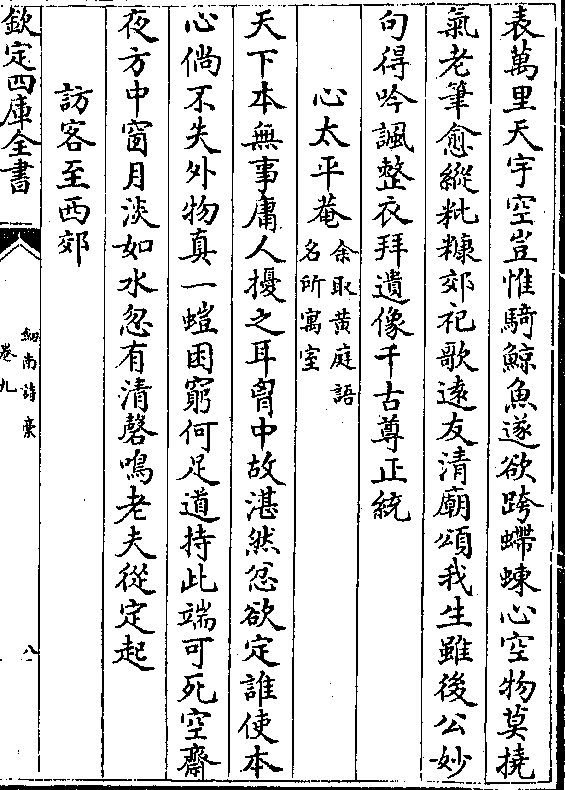 表萬里天宇空豈惟騎鯨魚遂欲跨䗖蝀心空物莫撓
氣老筆愈縱秕糠郊祀歌遠友清廟頌我生雖後公妙
句得吟諷整衣拜遺像千古尊正統
心太平菴余取黄庭語名所寓室
天下本無事庸人擾之耳胷中故湛然忿欲定誰使本
心倘不失外物真一螘困窮何足道持此端可死空齋
夜方中窗月淡如水忽有清磬鳴老夫從定起
訪客至西郊
欽定四庫全書
劒南詩稾
卷九
八